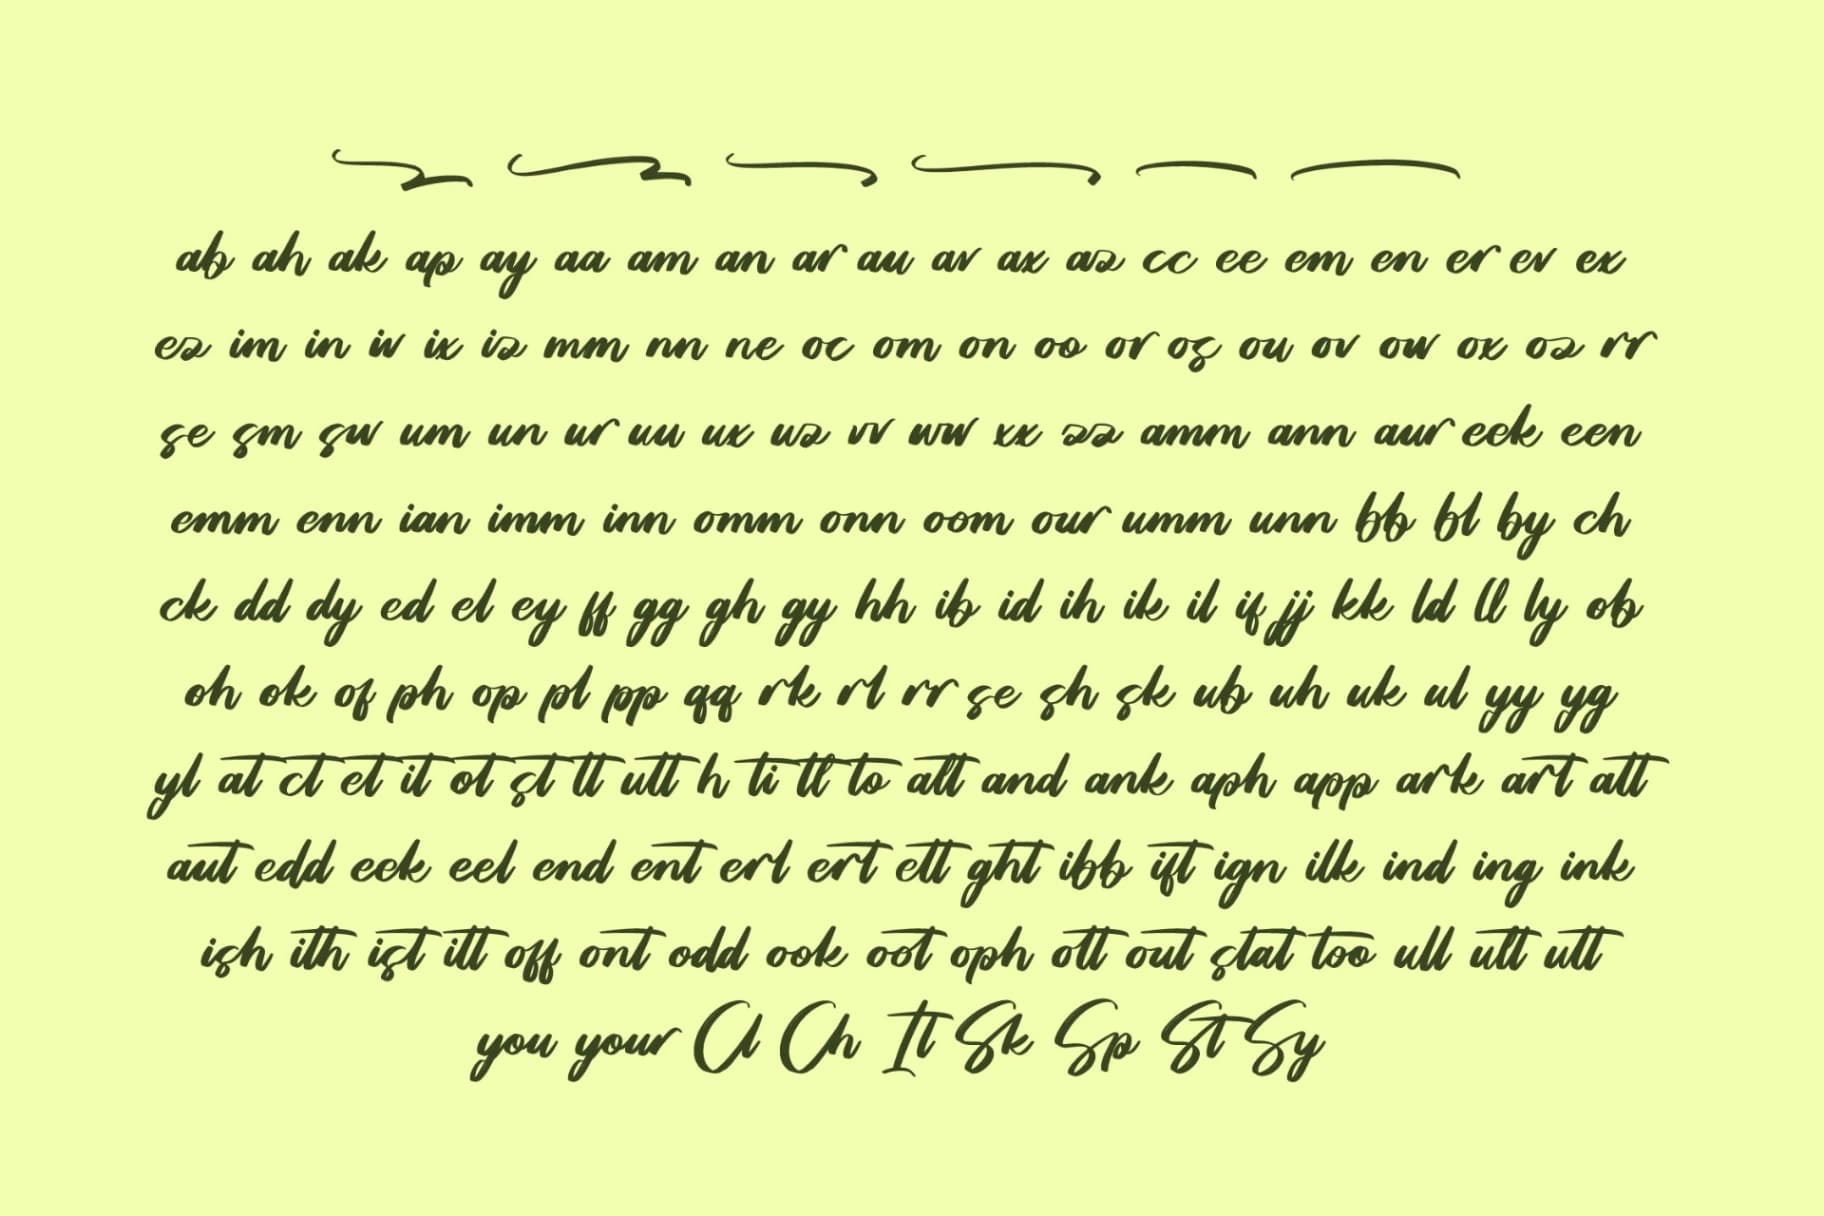 ab ah ak ap ay aa am an ar au av ax az cc ee em en er ev ex
ez im in iv ix iz mm nn ne oc om on oo or os ou ov ow ox oz rr
se sm sw um un ur uu ux uz vv ww xx zz amm ann aur eek een
emm enn ian imm inn omm onn oom our umm unn bb bl by ch
ck dd dy ed el ey ff gg gh gy hh ib id ih ik il if jj kk ld ll ly ob
oh ok of ph op pl pp qq rk rl rr se sh sk ub uh uk ul yy yg
yl at ct et it ot st tt utt h ti tl to alt and ank aph app ark art att
aut edd eek eel end ent erl ert ett ght ibb ift ign ilk ind ing ink
ish ith ist itt off ont odd ook oot oph ott out stat too ull ult utt
you your Cl Ch It Sk Sp St Sy